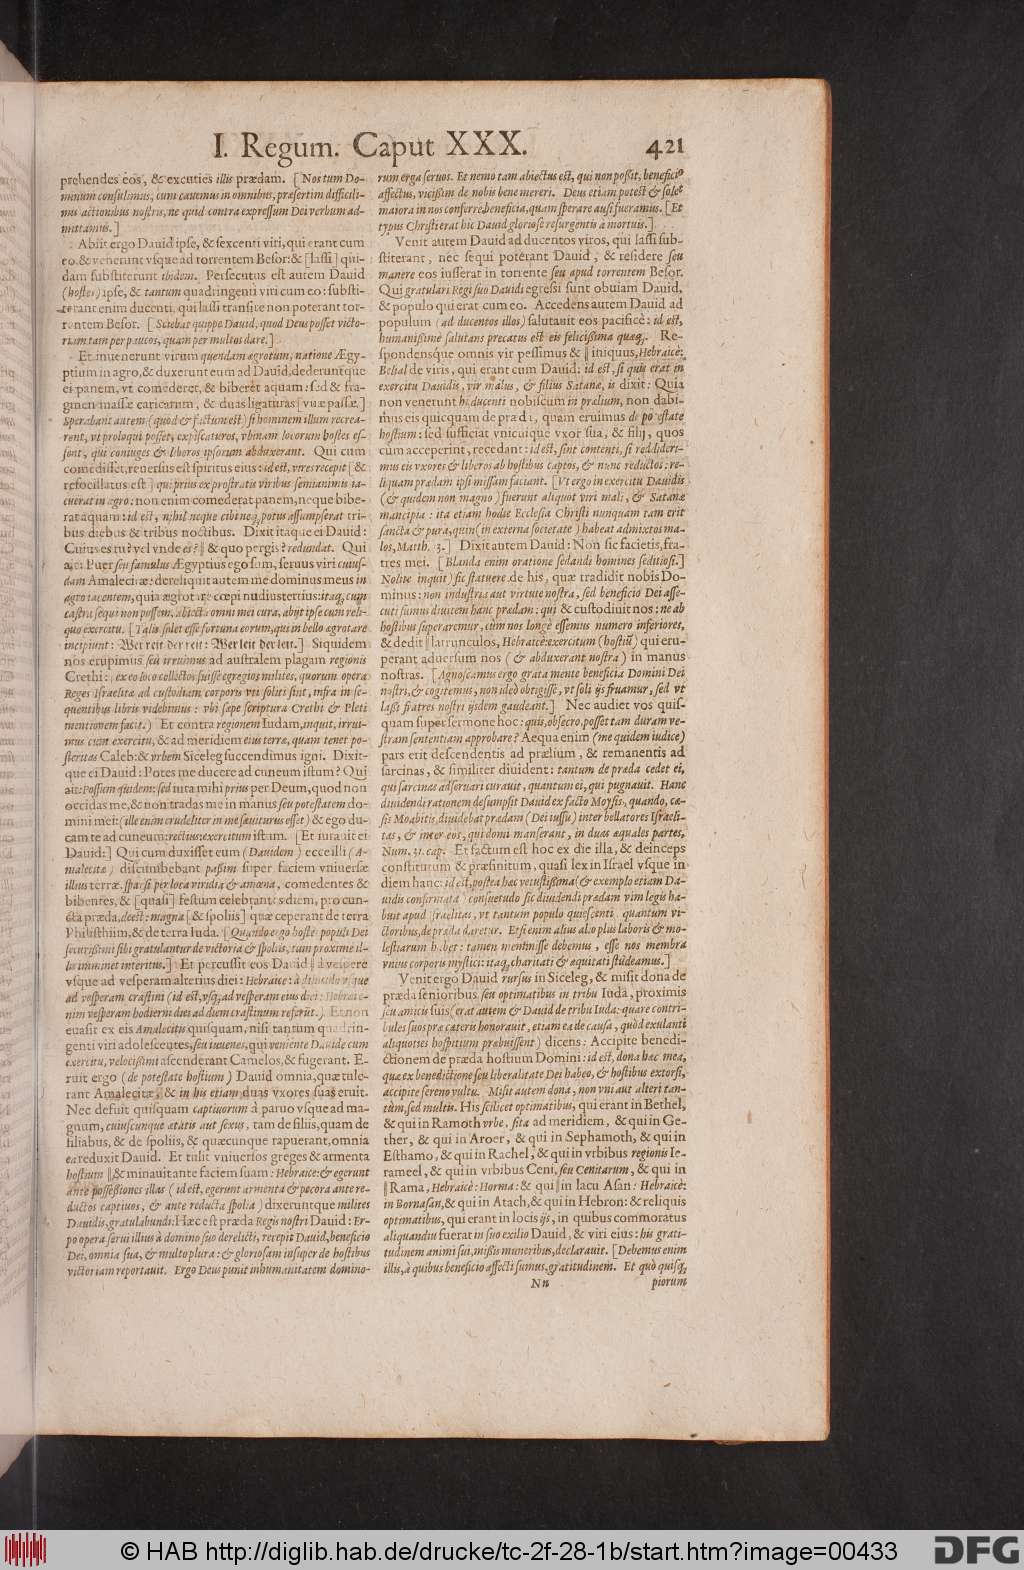 I. Regum. Caput XXX. 421
prehendes eos, & excuties illis prædam. [Nos tum Do-
minum consulimus, cum cauemus in omnibus, præsertim difficili-
mis actionibus nostris, ne quid contra expressum Dei verbum ad-
mittamus.]
Abijt ergo Dauid ipse, & sexcenti viri, qui erant cum
eo. & venerunt vsque ad torrentem Besor: & [lassi] qui-
dam substiterunt ibidem. Persecutus est autem Dauid
(hostes) ipse, & tantum quadringenti viri cum eo: substi-
terant enim ducenti, qui lassi transire non poterant tor-
rentem Besor. [Sciebat quippe Dauid, quod Deus posset victo-
riam tam per paucos, quam per multos dare.]
Et inuenerunt virum quendam ægrotum, natione Ægy-
ptium in agro, & duxerunt eum ad Dauid, dederuntque
ei panem, vt comederet, & biberet aquam: sed & fra-
gmen massæ caricarum, & duas ligaturas [vuæ passæ.]
Sperabant autem (quod & factum est) si hominem illum recrea-
rent, vt proloqui posset, expiscaturos, vbinam locorum hostes es-
sent, qui coniuges & liberos ipsorum abduxerant. Qui cum
comedisset, reuersus est spiritus eius: id est, vires recepit [&
refocillatus est] qui prius ex prostratis viribus semianimis ia-
cuerat in agro: non enim comederat panem, neque bibe-
rat aquam: id est, nihil neque cibi neq, potus assumpserat tri-
bus diebus & tribus noctibus. Dixit itaque ei Dauid:
Cuius es tu? vel vnde es? ‖ & quo pergis? redundat. Qui
ait: Puer seu famulus Ægyptius ego sum, seruus viri cuius-
dam Amalecitæ: dereliquit autem me dominus meus in
agro iacentem, quia ægrotare cœpi nudiustertius: itaq, cum
castra sequi non possem, abiecta omni mei cura, abijt ipse cum reli-
quo exercitu. [Talis solet esse fortuna eorum, qui in bello ægrotare
incipiunt: Wer reit der reit: Wer leit der leit.] Siquidem
nos erupimus seu irruimus ad australem plagam regionis
Crethi: ex eo loco collectos fuisse egregios milites, quorum opera
Reges Israelitæ ad custodiam corporis vti soliti sint, infra in se-
quentibus libris videbimus: vbi sæpe scriptura Crethi & Pleti
mentionem facit.) Et contra regionem Iudam, inquit, irrui-
mus cum exercitu, & ad meridiem eius terræ, quam tenet po-
steritas Caleb: & vrbem Siceleg succendimus igni. Dixit-
que ei Dauid: Potes me ducere ad cuneum istum? Qui
ait: Possum quidem: sed iura mihi prius per Deum, quod non
occidas me, & non tradas me in manus seu potestatem do-
mini mei: (ille enim crudeliter in me sæuiturus esset) & ego du-
cam te ad cuneum: rectius: exercitum istum. [Et iurauit ei
Dauid:] Qui cum duxisset eum (Dauidem) ecce illi (A-
malecitæ) discumbebant passim super faciem vniuersæ
illius terræ, sparsi per loca viridia & amœna, comedentes &
bibentes, & [quasi] festum celebrantes diem, pro cun-
cta præda, deest: magna [& spolijs] quæ ceperant de terra
Philisthiim, & de terra Iuda. [Quando ergo hostes populi Dei
securissimi sibi gratulantur de victoria & spolijs, tum proxime il-
lis imminet interitus.] Et percussit eos Dauid ‖ à vespere
vsque ad vesperam alterius diei: Hebraice: à diluculo vsque
ad vesperam crastini (id est, vsq, ad vesperam eius diei: Hebræi e-
nim vesperam hodierni dies ad diem crastinum referūt.) Et non
euasit ex eis Amalecitis quisquam, nisi tantum quadrin-
genti viri adolescentes, seu iuuenes, qui veniente Dauide cum
exercitu, velocissimi ascenderant Camelos, & fugerant. E-
ruit ergo (de potestate hostium) Dauid omnia, quæ tule-
rant Amalecitæ, & in his etiam duas vxores suas eruit.
Nec defuit quisquam captiuorum à paruo vsque ad ma-
gnum, cuiuscunque ætatis aut sexus, tam de filiis, quam de
filiabus, & de spoliis, & quæcunque rapuerant, omnia
ea reduxit Dauid. Et tulit vniuersos greges & armenta
hostium ‖ & minauit ante faciem suam: Hebraice: & egerunt
ante possessiones illas (id est, egerunt armenta & pecora ante re-
ductos captiuos, & ante reducta spolia) dixeruntque milites
Dauidis, gratulabundi: Hæc est præda Regis nostri Dauid: Er-
po opera serui illius à domino suo derelicti, recepit Dauid, beneficio
Dei, omnia sua, & multo plura: & gloriosam insuper de hostibus
victoriam reportauit. Ergo Deus punit inhumanitatem domino-
rum erga seruos. Et nemo tam abiectus est, qui non possit, beneficio
affectus, vicissim de nobis bene mereri. Deus etiam potest & solet
maiora in nos conferre beneficia, quam sperare ausi fueramus. [Et
typus Christi erat hic Dauid gloriose resurgentis à mortuis.]
Venit autem Dauid ad ducentos viros, qui lassi sub-
stiterant, nec sequi poterant Dauid, & residere seu
manere eos iusserat in torrente seu apud torrentem Besor.
Qui gratulari Regi suo Dauidi egressi sunt obuiam Dauid,
& populo qui erat cum eo. Accedens autem Dauid ad
populum (ad ducentos illos) salutauit eos pacificè: id est,
humanissimè salutans precatus est eis felicissima quæq,. Re-
spondensque omnis vir pessimus & ‖ iniquus, Hebraicè:
Belial de viris, qui erant cum Dauid: id est, si quis erat in
exercitu Dauidis, vir malus, & filius Satanæ, is dixit: Quia
non venerunt hi ducenti nobiscum in prælium, non dabi-
mus eis quicquam de præda, quam eruimus de potestate
hostium: sed sufficiat vnicuique vxor sua, & filij, quos
cum acceperint, recedant: id est, sint contenti, si reddideri-
mus eis vxores & liberos ab hostibus captos, & nunc reductos: re-
liquam prædam ipsi missam faciant. [Vt ergo in exercitu Dauidis
(& quidem non magno) fuerunt aliquot viri mali, & Satanæ
mancipia: ita etiam hodie Ecclesia Christi nunquam tam erit
sancta & pura, quin (in externa societate) habeat admixtos ma-
los, Matth. 3.] Dixit autem Dauid: Non sic facietis, fra-
tres mei. [Blanda enim oratione sedandi homines seditiosi.]
Nolite inquit) sic statuere de his, quæ tradidit nobis Do-
minus: non industria aut virtute nostra, sed beneficio Dei asse-
cuti sumus diuitem hanc prædam: qui & custodiuit nos: ne ab
hostibus superaremur, cùm nos longè essemus numero inferiores,
& dedit ‖ latrunculos, Hebraicè: exercitum (hostiū) qui eru-
perant aduersum nos (& abduxerant nostra) in manus
nostras. [Agnoscamus ergo grata mente beneficia Domini Dei
nostri, & cogitemus, non ideò obtigisse, vt soli ijs fruamur, sed vt
lassi fratres nostri ijsdem gaudeant.] Nec audiet vos quis-
quam super sermone hoc: quis, obsecro, posset tam duram ve-
stram sententiam approbare? Aequa enim (me quidem iudice)
pars erit descendentis ad prælium, & remanentis ad
sarcinas, & similiter diuident: tantum de præda cedet ei,
qui sarcinas adseruari curauit, quantum ei, qui pugnauit. Hanc
diuidendi rationem desumpsit Dauid ex facto Moysis, quando, cæ-
sis Moabitis, diuidebat prædam (Dei iussu) inter bellatores Israeli-
tas, & inter eos, qui domi manserant, in duas æquales partes,
Num. 31. cap. Et factum est hoc ex die illa, & deinceps
constitutum & præfinitum, quasi lex in Israel vsque in
diem hanc: id est, postea hæc vetustissima (& exemplo etiam Da-
uidis confirmata) consuetudo sic diuidendi prædam vim legis ha-
buit apud Israelitas, vt tantum populo quiescenti, quantum vi-
ctoribus, de præda daretur. Etsi enim alius alio plus laboris & mo-
lestiarum habet: tamen meminisse debemus, esse nos membra
vnius corporis mystici: itaq, charitati & æquitati studeamus.]
Venit ergo Dauid rursus in Siceleg, & misit dona de
præda senioribus seu optimatibus in tribu Iuda, proximis
seu amicis suis (erat autem & Dauid de tribu Iuda: quare contri-
bules suos præ cæteris honorauit, etiam ea de causa, quòd exulanti
aliquoties hospitium præbuissent) dicens: Accipite benedi-
ctionem de præda hostium Domini: id est, dona hæc mea,
quæ ex benedictione seu liberalitate Dei habeo, & hostibus extorsi,
accipite sereno vultu. Misit autem dona, non vni aut alteri tan-
tùm, sed multis. His scilicet optimatibus, qui erant in Bethel,
& qui in Ramoth vrbe, sita ad meridiem, & qui in Ge-
ther, & qui in Aroer, & qui in Sephamoth, & qui in
Esthamo, & qui in Rachel, & qui in vrbibus regionis Ie-
rameel, & qui in vrbibus Ceni, seu Cenitarum, & qui in
‖ Rama, Hebraicè: Horma: & qui ‖ in lacu Asan: Hebraicè:
in Bornasan, & qui in Atach, & qui in Hebron: & reliquis
optimatibus, qui erant in locis ijs, in quibus commoratus
aliquandiu fuerat in suo exilio Dauid, & viri eius: his grati-
tudinem animi sui, missis muneribus, declarauit. [Debemus enim
illis, à quibus beneficio affecti sumus, gratitudinem. Et quò quisq,
Nn piorum
© HAB http://diglib.hab.de/drucke/tc-2f-28-1b/start.htm?image=00433
DFG